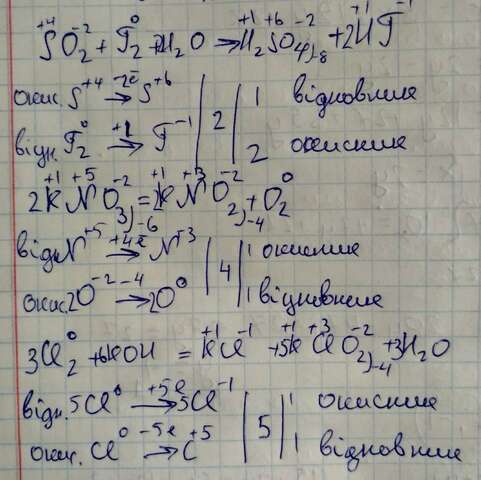 S⁺⁴O₂⁻² + I₂⁰ + H₂O → H₂⁺¹S⁺⁶O₄⁻²)₋₈ + 2H⁺¹I⁻¹
окис. S⁺⁴ →⁻²ē S⁺⁶ | 2 | 1 відновник
відн. I₂⁰ →⁺¹ I⁻¹ | | 2 окисник
2K⁺¹N⁺⁵O₃⁻²)₋₆ = 2K⁺¹N⁺³O₂⁻²)₋₄ + O₂⁰
відн. N⁺⁵ →⁺⁴ē N⁺³ | 4 | 1 окисник
окис. 2O⁻² →⁻⁴ 2O⁰ | | 1 відновник
3Cl₂⁰ + 6KOH = K⁺¹Cl⁻¹ + 5K⁺¹Cl⁺³O₂⁻²)₋₄ + 3H₂O
відн. 5Cl⁰ →⁺⁵ē 5Cl⁻¹ | 5 | 1 окисник
окис. Cl⁰ →⁻⁵ē C⁺⁵ | | 1 відновник